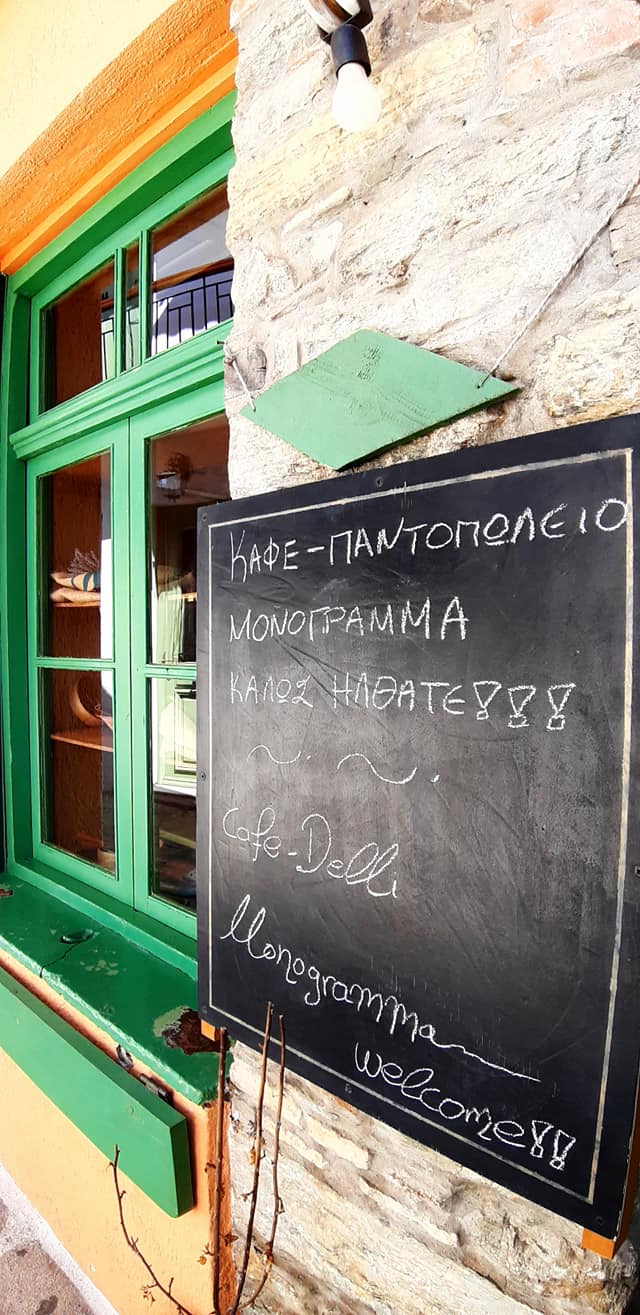 ΚΑΦΕ-ΠΑΝΤΟΠΩΛΕΙΟ
ΜΟΝΟΓΡΑΜΜΑ
ΚΑΛΩΣ ΗΛΘΑΤΕ!!!
Cafe-Delli
Monogramma
welcome!!